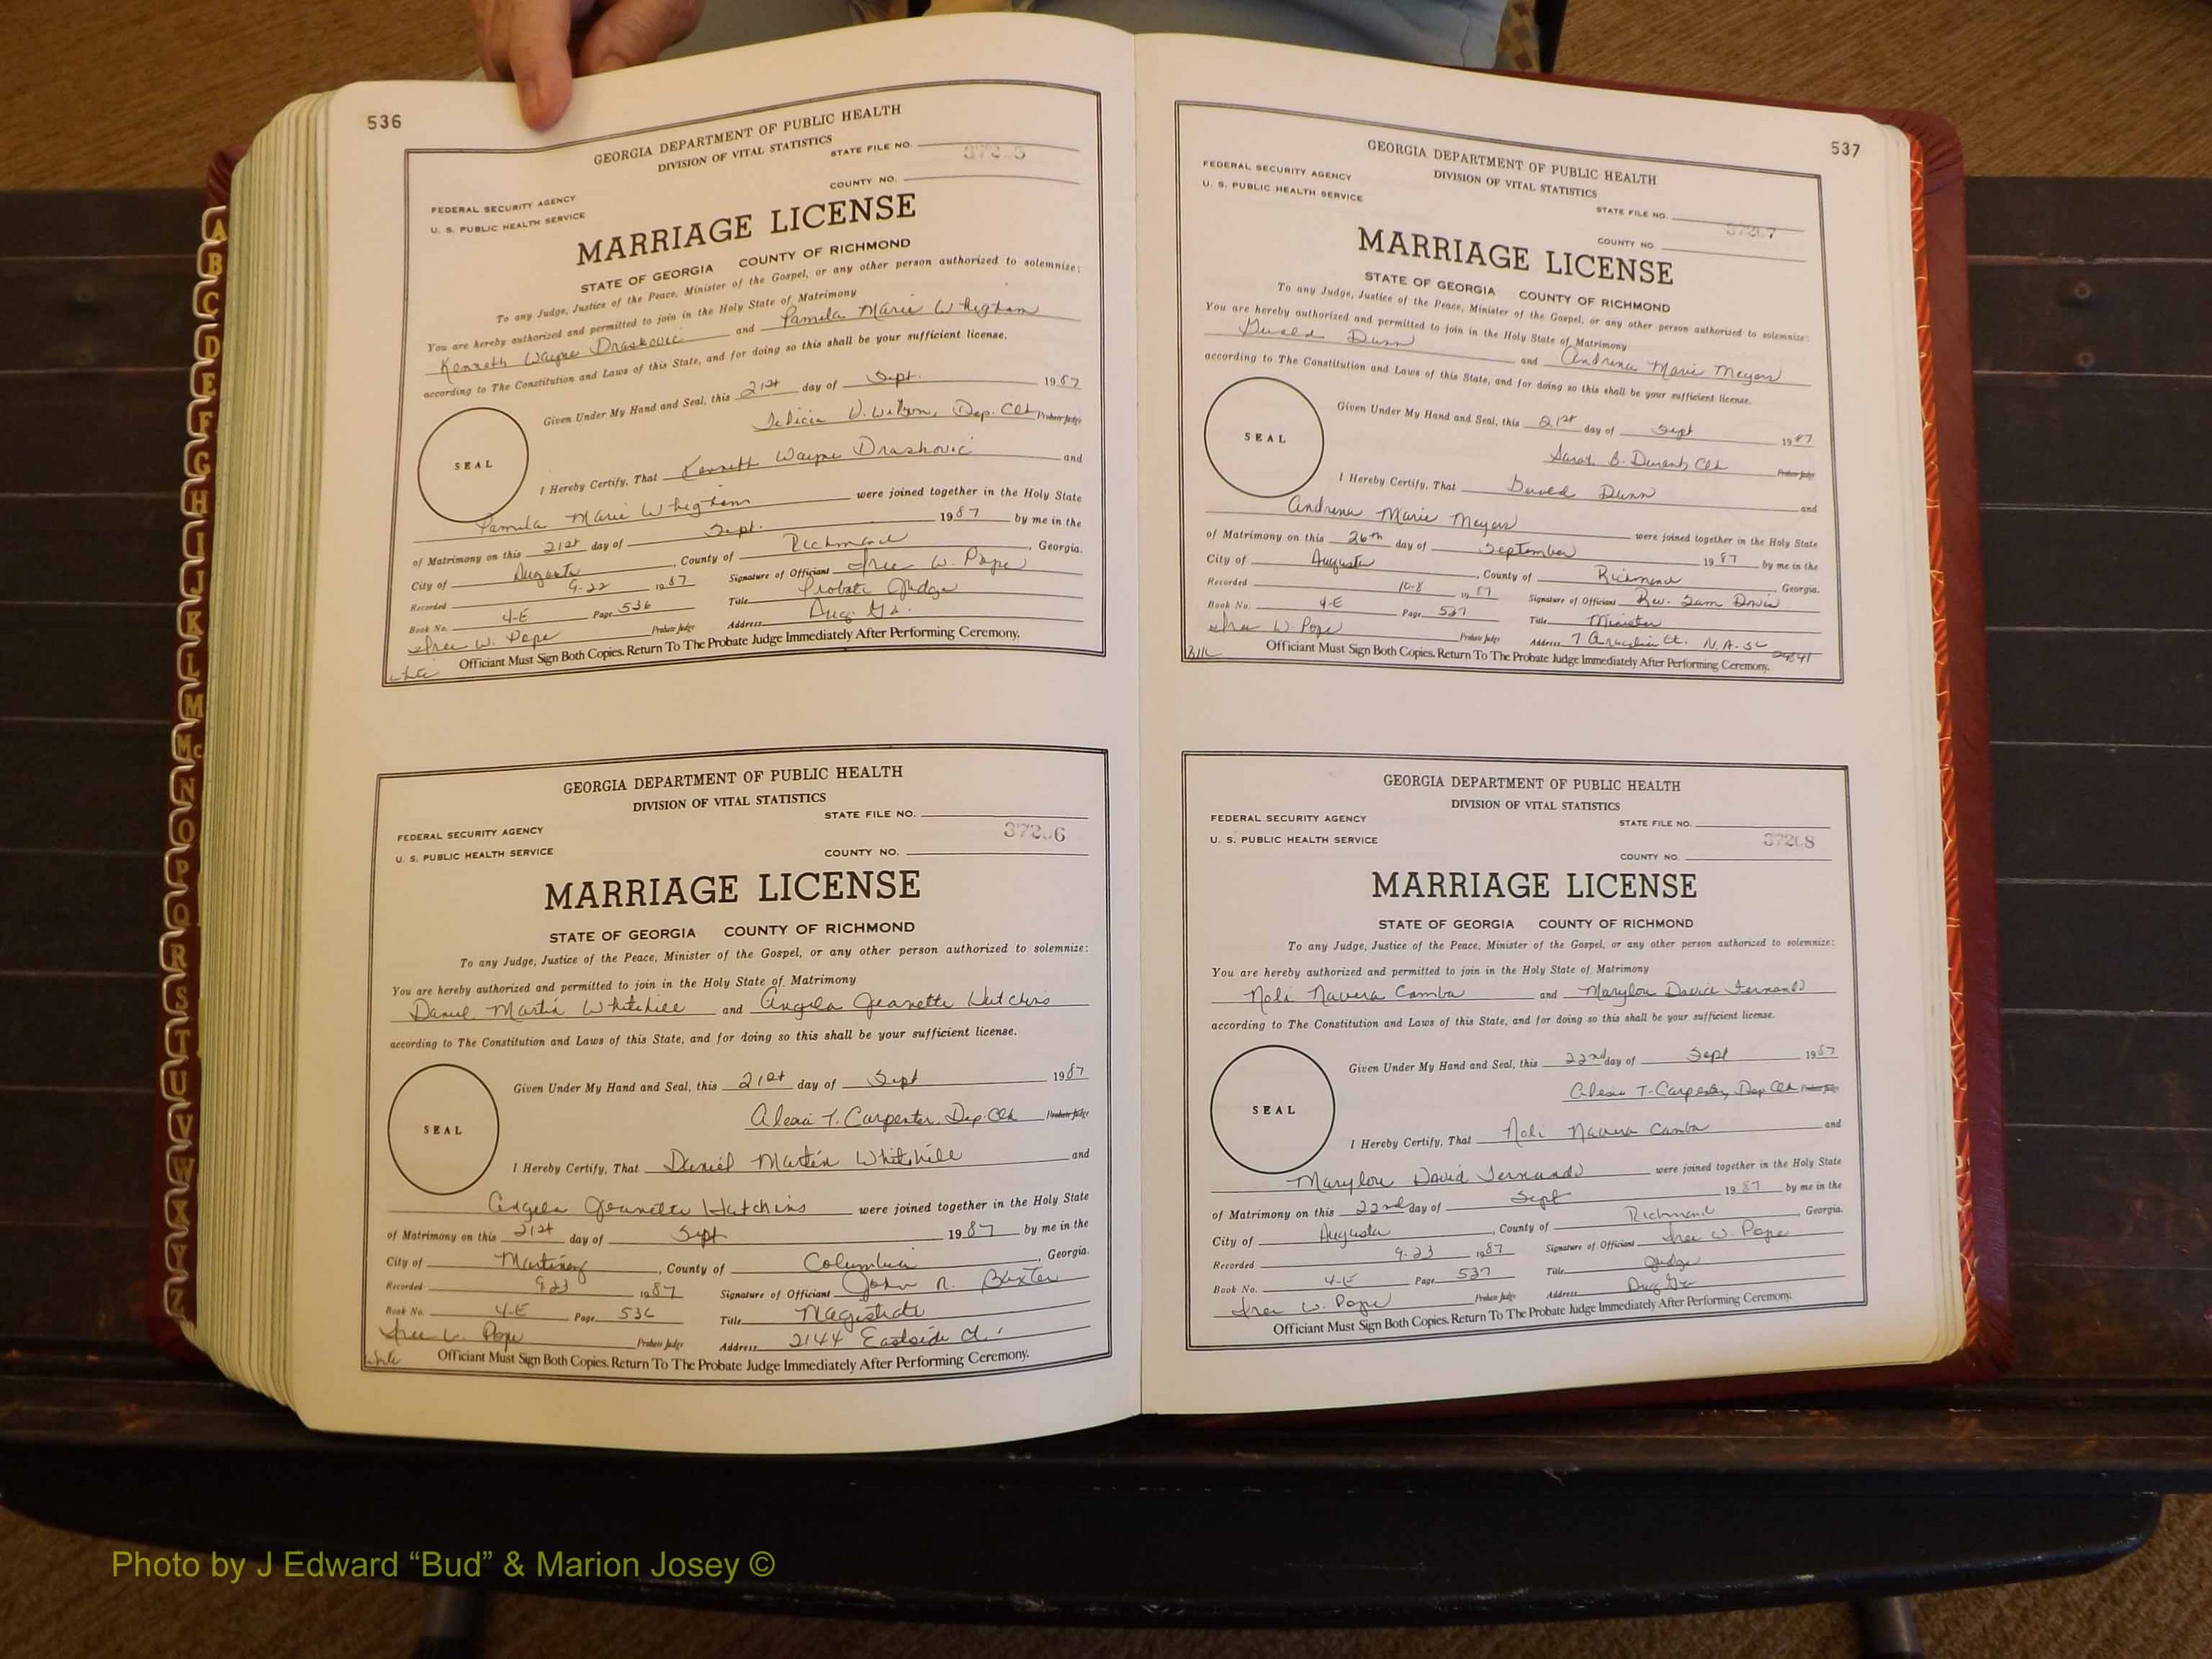 536
GEORGIA DEPARTMENT OF PUBLIC HEALTH
DIVISION OF VITAL STATISTICS
STATE FILE NO.
FEDERAL SECURITY AGENCY
COUNTY NO.
U. S. PUBLIC HEALTH SERVICE
MARRIAGE LICENSE
STATE OF GEORGIA COUNTY OF RICHMOND
To any Judge, Justice of the Peace, Minister of the Gospel, or any other person authorized to solemnize:
You are hereby authorized and permitted to join in the Holy State of Matrimony
Kenneth Wayne Draskovic and Pamela Marie Whigham
according to The Constitution and Laws of this State, and for doing so this shall be your sufficient license.
Given Under My Hand and Seal, this 21st day of Sept. 1987
SEAL
D. Wilson, Dep. Clk Probate Judge
I Hereby Certify, That Kenneth Wayne Draskovic and
Pamela Marie Whigham were joined together in the Holy State
of Matrimony on this 21st day of Sept. 1987 by me in the
City of Augusta, County of Richmond, Georgia.
Recorded 9-22 1987 Signature of Officiant W. Pope
Book No. 4-E Page 536 Title Probate Judge
W. Pope Probate Judge Address Aug. Ga.
Officiant Must Sign Both Copies. Return To The Probate Judge Immediately After Performing Ceremony.
GEORGIA DEPARTMENT OF PUBLIC HEALTH
DIVISION OF VITAL STATISTICS
STATE FILE NO.
FEDERAL SECURITY AGENCY
U. S. PUBLIC HEALTH SERVICE
COUNTY NO.
MARRIAGE LICENSE
STATE OF GEORGIA COUNTY OF RICHMOND
To any Judge, Justice of the Peace, Minister of the Gospel, or any other person authorized to solemnize:
You are hereby authorized and permitted to join in the Holy State of Matrimony
Daniel Martin Whitehill and Angela Jeanette Hutchins
according to The Constitution and Laws of this State, and for doing so this shall be your sufficient license.
Given Under My Hand and Seal, this 21st day of Sept 1987
SEAL
T. Carpenter, Dep. Clk Probate Judge
I Hereby Certify, That Daniel Martin Whitehill and
Angela Jeanette Hutchins were joined together in the Holy State
of Matrimony on this 21st day of Sept 1987 by me in the
City of Martinez, County of Columbia, Georgia.
Recorded 9-23 1987 Signature of Officiant John R. Baxter
Book No. 4-E Page 536 Title Magistrate
Pope Probate Judge Address 2144 Eastside Ct.
Officiant Must Sign Both Copies. Return To The Probate Judge Immediately After Performing Ceremony.
537
GEORGIA DEPARTMENT OF PUBLIC HEALTH
DIVISION OF VITAL STATISTICS
FEDERAL SECURITY AGENCY
U. S. PUBLIC HEALTH SERVICE
STATE FILE NO.
COUNTY NO.
MARRIAGE LICENSE
STATE OF GEORGIA COUNTY OF RICHMOND
To any Judge, Justice of the Peace, Minister of the Gospel, or any other person authorized to solemnize:
You are hereby authorized and permitted to join in the Holy State of Matrimony
Dunn and Andrena Marie Meyers
according to The Constitution and Laws of this State, and for doing so this shall be your sufficient license.
Given Under My Hand and Seal, this 21st day of Sept 1987
SEAL
B. Clk Probate Judge
I Hereby Certify, That Dunn and
Andrena Marie Meyers were joined together in the Holy State
of Matrimony on this 26th day of September 1987 by me in the
City of Augusta, County of Richmond, Georgia.
Recorded 10-8 1987 Signature of Officiant Rev. Sam Davis
Book No. 4-E Page 537 Title Minister
W. Pope Probate Judge Address 7 Ct. N.A. SC 29841
Officiant Must Sign Both Copies. Return To The Probate Judge Immediately After Performing Ceremony.
GEORGIA DEPARTMENT OF PUBLIC HEALTH
DIVISION OF VITAL STATISTICS
FEDERAL SECURITY AGENCY
STATE FILE NO.
U. S. PUBLIC HEALTH SERVICE
COUNTY NO.
MARRIAGE LICENSE
STATE OF GEORGIA COUNTY OF RICHMOND
To any Judge, Justice of the Peace, Minister of the Gospel, or any other person authorized to solemnize:
You are hereby authorized and permitted to join in the Holy State of Matrimony
Noli Navera Camba and Marylou David Fernando
according to The Constitution and Laws of this State, and for doing so this shall be your sufficient license.
Given Under My Hand and Seal, this 22nd day of Sept 1987
SEAL
T. Carpenter, Dep Clk Probate Judge
I Hereby Certify, That Noli Navera Camba and
Marylou David Fernando were joined together in the Holy State
of Matrimony on this 22nd day of Sept 1987 by me in the
City of Augusta, County of Richmond, Georgia.
Recorded 9-23 1987 Signature of Officiant W. Pope
Book No. 4-E Page 537 Title Judge
W. Pope Probate Judge Address Aug Ga
Officiant Must Sign Both Copies. Return To The Probate Judge Immediately After Performing Ceremony.
A
B
C
D
E
F
G
H
I
J
K
L
M
Mc
N
O
P
Q
R
S
T
U
V
W
X
Y
Z
Photo by J Edward “Bud” & Marion Josey ©